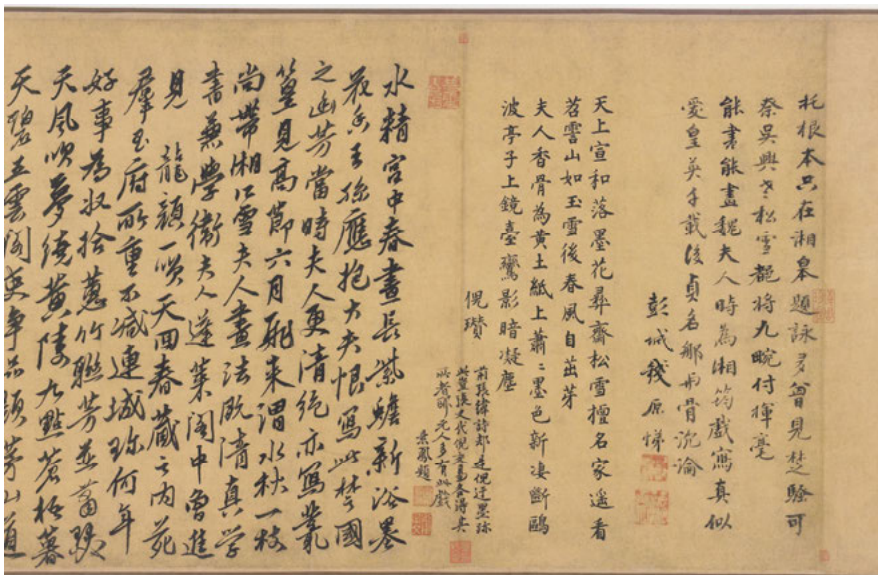 托根本只在湘皋題詠多曾見楚騷可
吳興老松雪都将九畹付揮毫
能書能畫魏夫人時為湘筠戲寫真似
愛皇英千載後貞名那與骨沉淪
彭城錢原悌
天上宣和落墨花彝齋松雪擅名家遥看
苕霅山如玉雪後春風自茁芽
夫人香骨為黄土紙上蕭〻墨色新凄斷鷗
波亭子上鏡臺鸞影暗凝塵
倪瓚
前張緯詩却是倪迂墨跡
此者耶元人多有此戲
景鳳題
水精宮中春晝長紫蟾新浴墨
花香王孫應抱大夫恨寫此楚國
之幽芳當時夫人更清絶亦寫叢
篁見高節六月飛来渭水秋一枝
尚帶湘江雪夫人畫法既清真學
書兼學衛夫人蓬萊閣中曾進
見 龍顔一咲天回春藏之内苑
羣玉府所重不減連城珎何年
好事為収拾蕙竹聯芳並
天風吹夢繞黄陵九點蒼梧暮
天碧五雲閣吏争品題茅山道